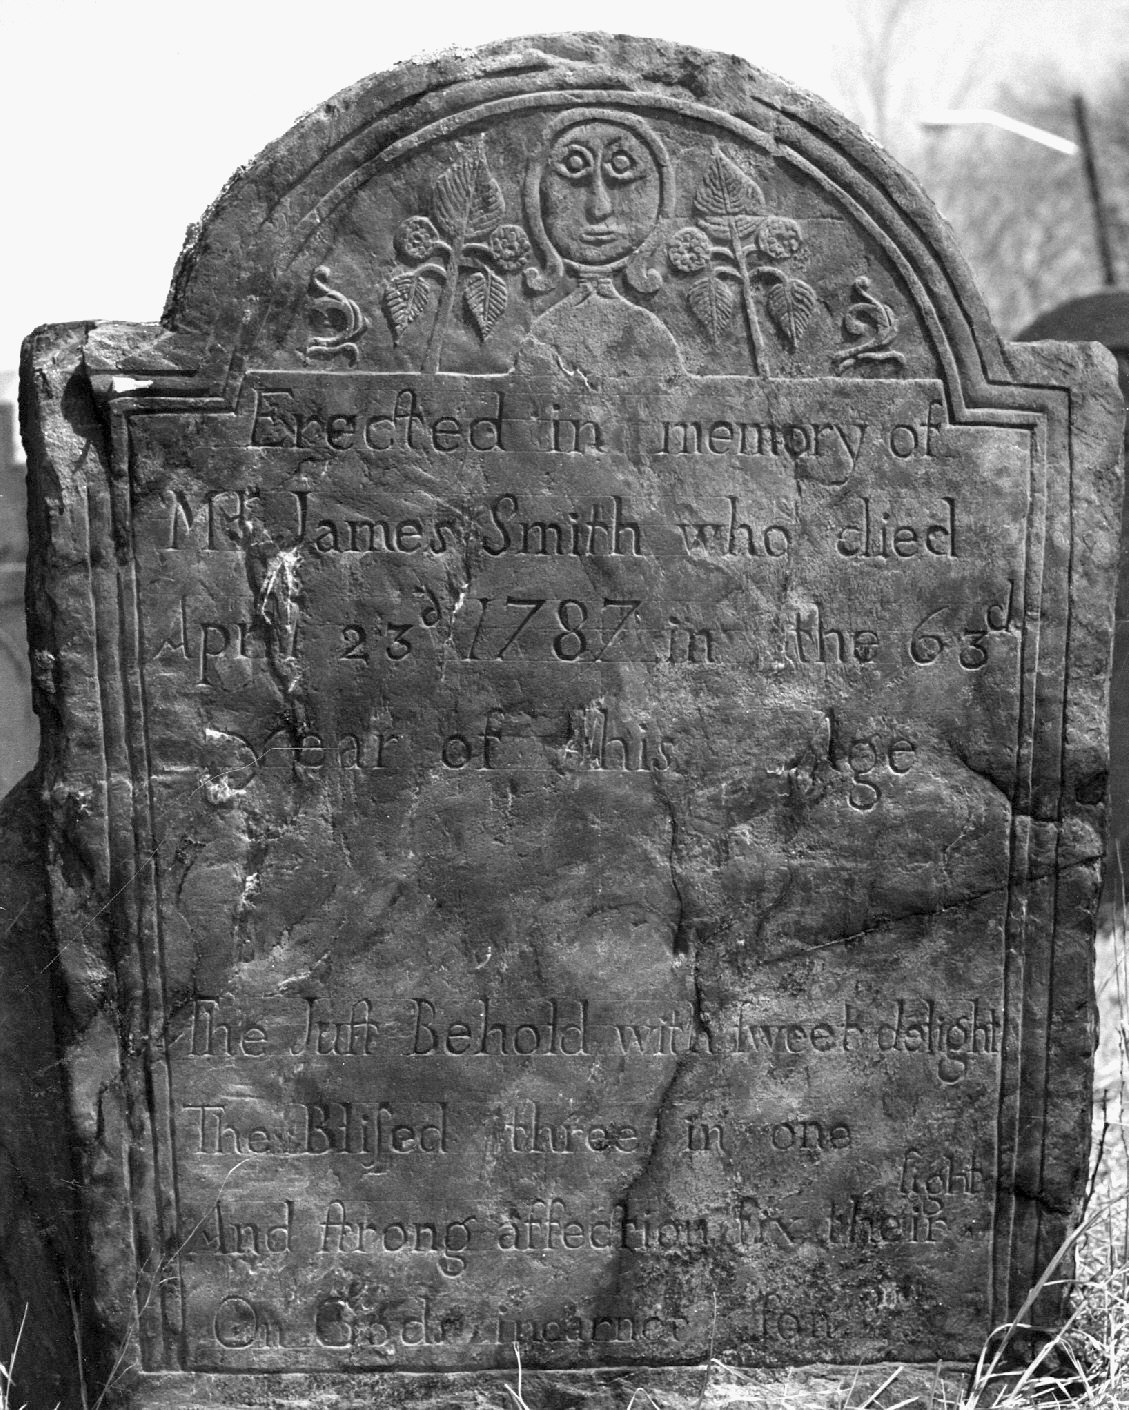 Erected in memory of
Mr. James Smith who died
April 23d 1787 in the 63d
year of his Age
The Juſt Behold with ſweet delight
The Bliſsed three in one
ſight
And ſtrong affection fix their
On Gods incarnet ſon